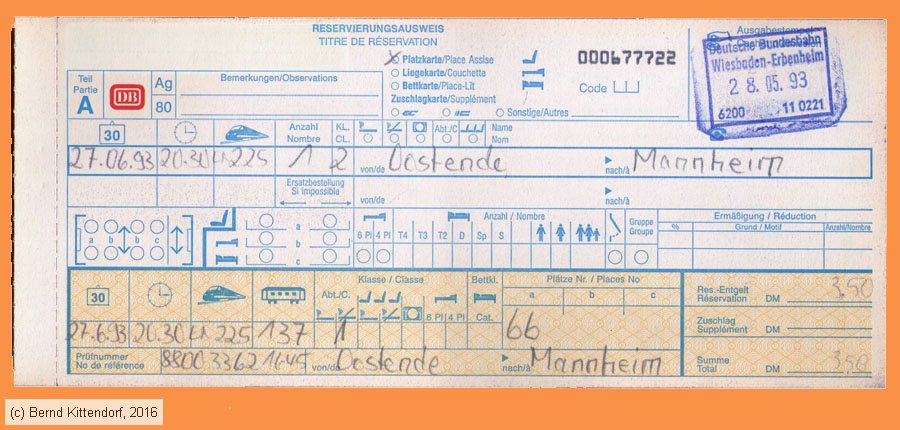 RESERVIERUNGSAUSWEIS
TITRE DE RÉSERVATION
Teil
Partie
A
DB
Ag
80
Bemerkungen/Observations
Platzkarte/Place Assise
Liegekarte/Couchette
Bettkarte/Place-Lit
Zuschlagkarte/Supplément
Sonstige/Autres
000677722
Code
Ausgabestempel
Deutsche Bundesbahn
Wiesbaden-Erbenheim
28.05.93
6200 11 0221
30
Anzahl
Nombre
KL.
CL.
Abt./C
Name
Nom
27.06.93 20.30 225 1 2 von/de Oostende nach/à Mannheim
Ersatzbestellung
Si impossible
von/de nach/à
a b b c
a
b
c
Anzahl / Nombre
6 Pl 4 Pl T4 T3 T2 D Sp S
Gruppe
Groupe
Ermäßigung / Réduction
% Grund / Motif Anzahl/Nombre
30
Abt./C.
Klasse / Classe
6 Pl 4 Pl
Bettkl.
Cat.
Plätze Nr. / Places No
a b c
Res.-Entgelt
Réservation DM 3,50
27.6.93 20.30 225 137 1 66
Zuschlag
Supplément DM
Prüfnummer
No de référence 8800 3362 1645 von/de Oostende nach/à Mannheim
Summe
Total DM 3,50
(c) Bernd Kittendorf, 2016